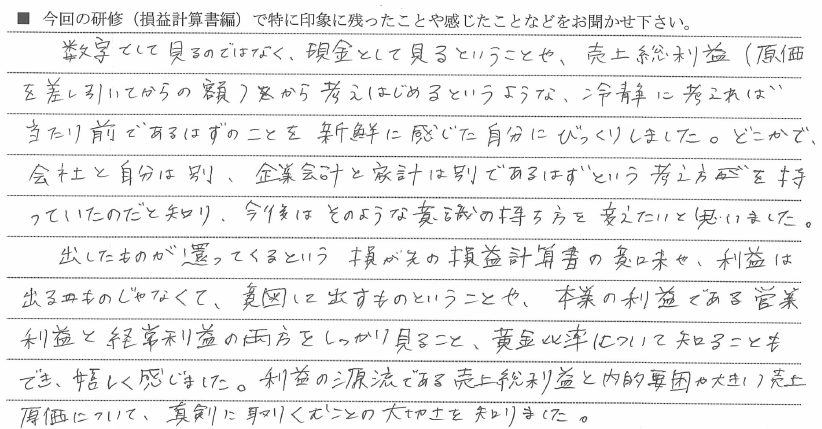 ■ 今回の研修（損益計算書編）で特に印象に残ったことや感じたことなどをお聞かせ下さい。
数字として見るのではなく、現金として見るということや、売上総利益（原価
を差し引いてからの額）から考えはじめるというような、冷静に考えれば
当たり前であるはずのことを新鮮に感じた自分にびっくりしました。どこかで、
会社と自分は別、企業会計と家計は別であるはずという考え方を持
っていたのだと知り、今後はそのような意識の持ち方を変えたいと思いました。
出したものが還ってくるという損が先の損益計算書の意味や、利益は
出るものじゃなくて、意図して出すものということや、本業の利益である営業
利益と経常利益の両方をしっかり見ること、黄金比率について知ることも
でき、嬉しく感じました。利益の源流である売上総利益と内的要因が大きい売上
原価について、真剣に取りくむことの大切さを知りました。